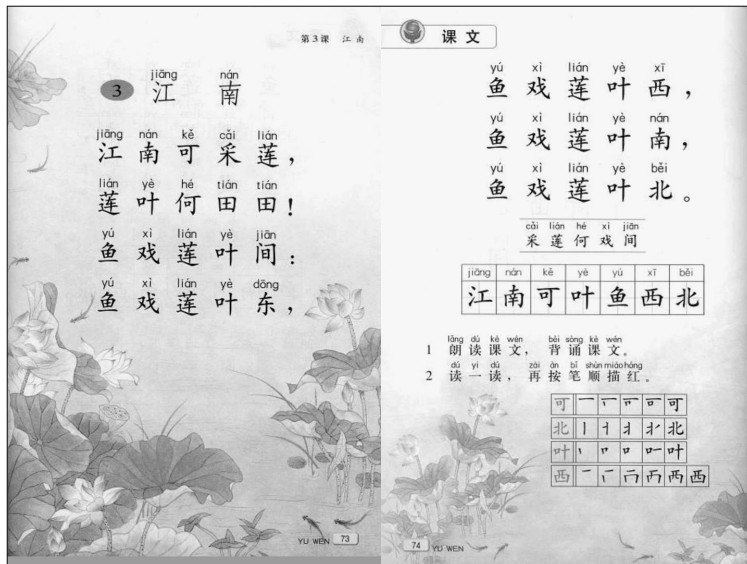 第3课 江南
jiāng nán
3 江 南
jiāng nán kě cǎi lián
江南可采莲，
lián yè hé tián tián
莲叶何田田！
yú xì lián yè jiān
鱼戏莲叶间：
yú xì lián yè dōng
鱼戏莲叶东，
YU WEN 73
课文
yú xì lián yè xī
鱼戏莲叶西，
yú xì lián yè nán
鱼戏莲叶南，
yú xì lián yè běi
鱼戏莲叶北。
cǎi lián hé xì jiān
采莲何戏间
jiāng nán kě yè yú xī běi
江南可叶鱼西北
lǎng dú kè wén bèi sòng kè wén
1 朗读课文，背诵课文。
dú yi dú zài àn bǐ shùn miáo hóng
2 读一读，再按笔顺描红。
可 一 可
北 丨 北
叶 丶 叶
西 一 西 西
74 YU WEN